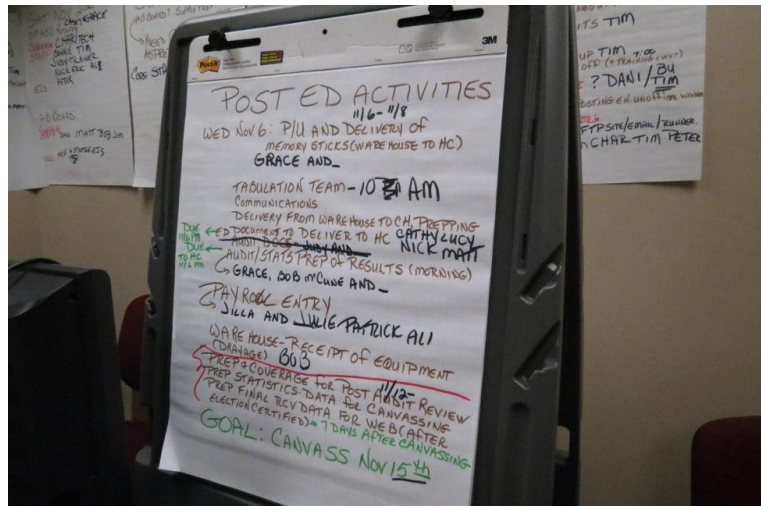 Post-it
3M
POST ED ACTIVITIES
11/6 - 11/8
WED NOV 6: P/U AND DELIVERY OF
MEMORY STICKS (WAREHOUSE TO HC)
GRACE AND_
TABULATION TEAM - 10 AM
COMMUNICATIONS
DELIVERY FROM WAREHOUSE TO CH, PREPPING
ED DOCUMENT TO DELIVER TO HC CATHY LUCY
NICK MATT
DUE
11/6 PM
DUE
TO HC
11/6 AM
AUDIT DOCS - JUDY AND
AUDIT/STATS PREP OF RESULTS (MORNING)
GRACE, BOB MCCUNE AND_
PAYROLL ENTRY
JILLA AND JULIE PATRICK ALI
WAREHOUSE - RECEIPT OF EQUIPMENT
(DRAYAGE) BOB
11/12-
PREP & COVERAGE FOR POST AUDIT REVIEW
PREP STATISTICS - DATA FOR CANVASSING
PREP FINAL RCV DATA FOR WEB (AFTER
ELECTION CERTIFIED) = 7 DAYS AFTER CANVASSING
GOAL: CANVASS NOV 15th
CHARTECH
TIM
JUDY
NICK ERIC ALI
PETER
MATT BOB JIM
ITS TIM
UP TIM 7:00
OFF (+ TRAINING
? DANI / BU
TIM
POSTING EN UNOFFICIAL WINNER
FTP SITE/EMAIL/RUNNER.
CHAR TIM PETER